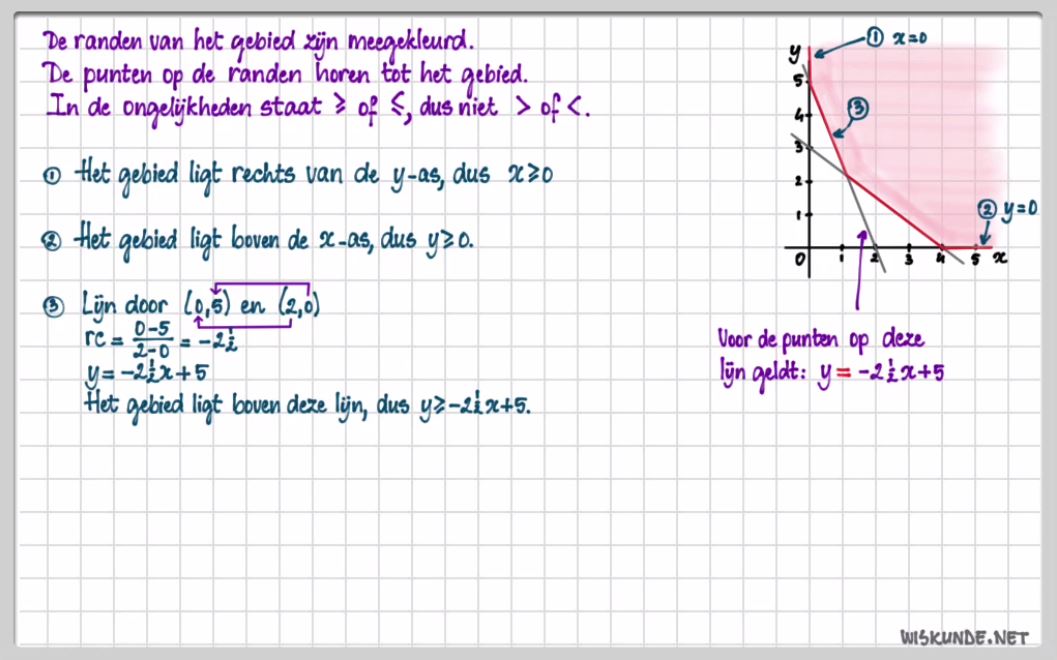 De randen van het gebied zijn meegekleurd.
De punten op de randen horen tot het gebied.
In de ongelijkheden staat ≥ of ≤, dus niet > of <.
① Het gebied ligt rechts van de y-as, dus x≥0
② Het gebied ligt boven de x-as, dus y≥0.
③ Lijn door (0,5) en (2,0)
rc = (0-5)/(2-0) = -2½
y = -2½x+5
Het gebied ligt boven deze lijn, dus y≥-2½x+5.
① x=0
y
5
4
3
2
1
③
② y=0
0 1 2 3 4 5 x
Voor de punten op deze
lijn geldt: y = -2½x+5
WISKUNDE.NET